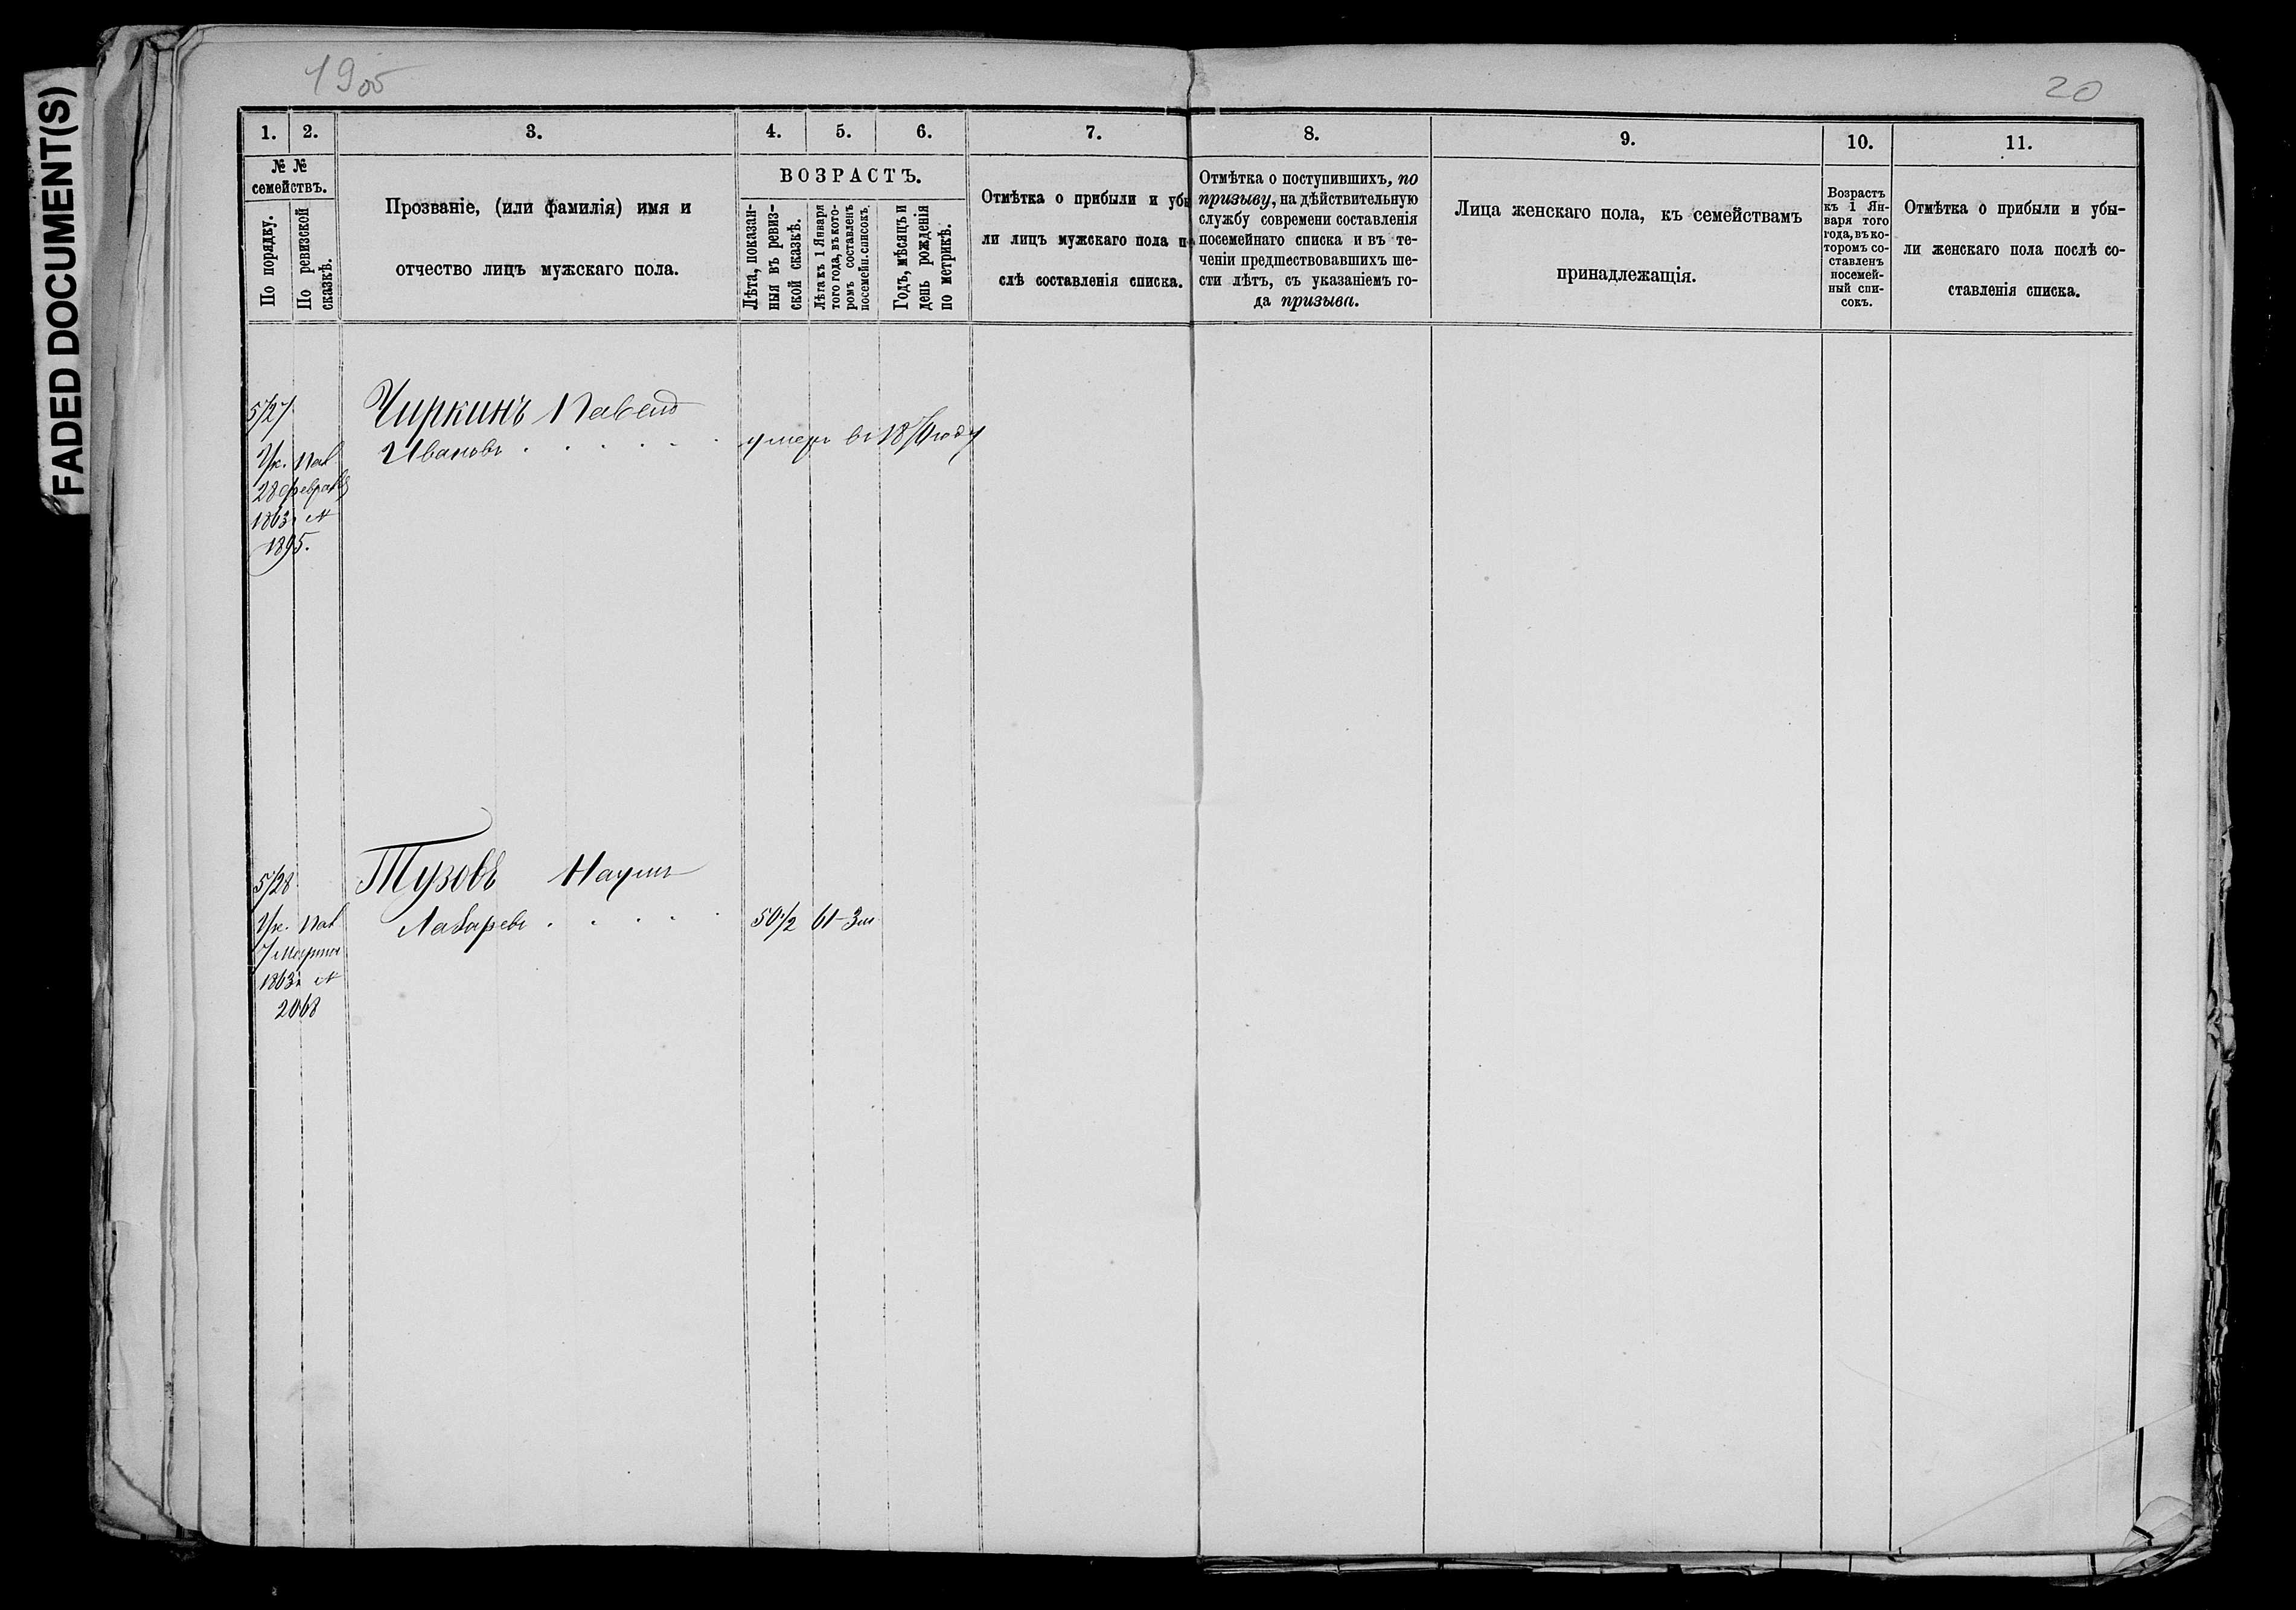 FADED DOCUMENT(S)
19об
20
1.
2.
3.
4.
5.
6.
7.
8.
9.
10.
11.
№ №
семействъ.
По порядку.
По ревизской
сказкѣ.
Прозваніе, (или фамилія) имя и
отчество лицъ мужскаго пола.
ВОЗРАСТЪ.
Лѣта, показан-
ныя въ ревиз-
ской сказкѣ.
Лѣта къ 1 Января
того года, въ кото-
ромъ составленъ
посемейн. списокъ.
Годъ, мѣсяцъ и
день рожденія
по метрикѣ.
Отмѣтка о прибыли и убы
ли лицъ мужскаго пола п
слѣ составленія списка.
Отмѣтка о поступившихъ, по
призыву, на дѣйствительную
службу современи составленія
посемейнаго списка и въ те-
ченіи предшествовавшихъ ше-
сти лѣтъ, съ указаніемъ го-
да призыва.
Лица женскаго пола, къ семействамъ
принадлежащія.
Возрастъ
къ 1 Ян-
варя того
года, въ ко-
торомъ со-
ставленъ
посемей-
ный спи-
сокъ.
Отмѣтка о прибыли и убы-
ли женскаго пола послѣ со-
ставленія списка.
527
Чиркинъ Павелъ
Ивановъ . . . . . умеръ въ 18 году
Ук. Пал
28 Февраля
1863 г №
1895.
528
Тузовъ Наумъ
Лазаревъ . . . . 50½ 61-3м
Ук. Пал
7 Марта
1863 г №
2068